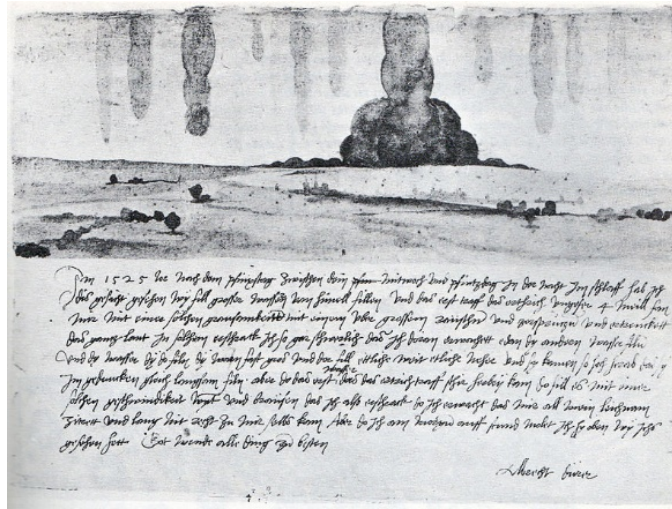 Im 1525 Jor nach dem pfinxstag zwischen dem mitwoch und pfintzdag in der nacht im schlaff hab ich
dis gesicht gesehen wy fill grosser wassern vom himell fillen Und das erst traff das erthrich ungefer 4 meill fan
mir mit einer solchen grausamkeitt mit einem uber grossem raüschn und zersprützn und ertrenckett
das gantz lant In solchem erschrack ich so gar schwerlich das ich doran erwachett edan dy andern wasser filn
Und dy wasser dy do filn dy warn fast gros und der fill ettliche weit etliche neher und sy kamen so hoch herab das sy
im gedancken gleich langsam filn. aber do das erst wasser das das ertrich traff schir herbey kam do fill es mit einer
solchen geschwindikeit wynt und braüsen das ich also erschrack do ich erwacht das mir all mein leichnam
zitrett und lang nit recht zu mir selbs kam Aber do ich am morgn auff stund molet ich hie oben wy ichs
gesehen hett Got wende alle ding zu besten
Albrecht dürer